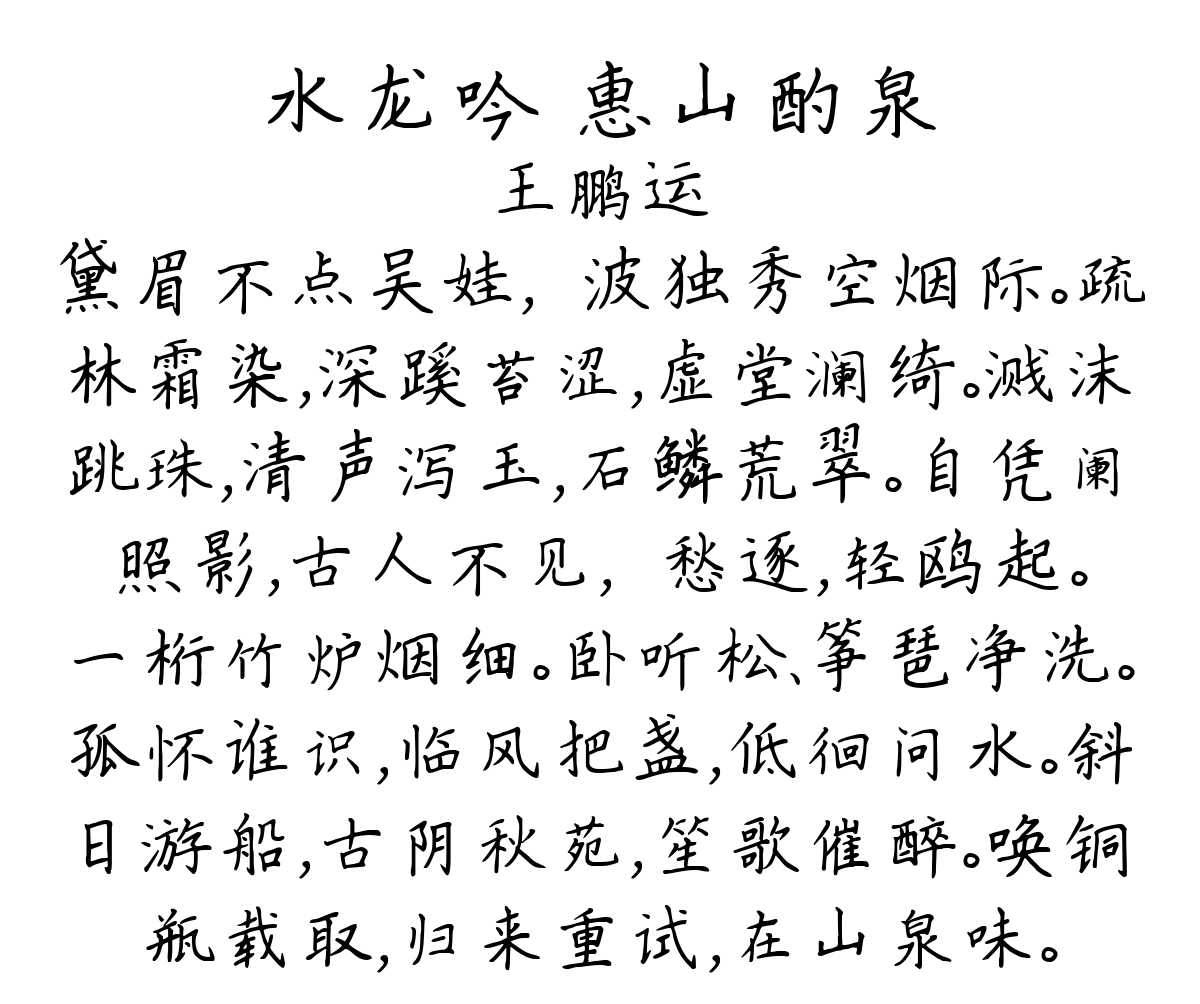 水龙吟 惠山酌泉
王鹏运
黛眉不点吴娃，波独秀空烟际。疏
林霜染，深蹊苔涩，虚堂澜绮。溅沫
跳珠，清声泻玉，石鳞荒翠。自凭阑
照影，古人不见，愁逐，轻鸥起。
一桁竹炉烟细。卧听松、筝琶净洗。
孤怀谁识，临风把盏，低徊问水。斜
日游船，古阴秋苑，笙歌催醉。唤铜
瓶载取，归来重试，在山泉味。